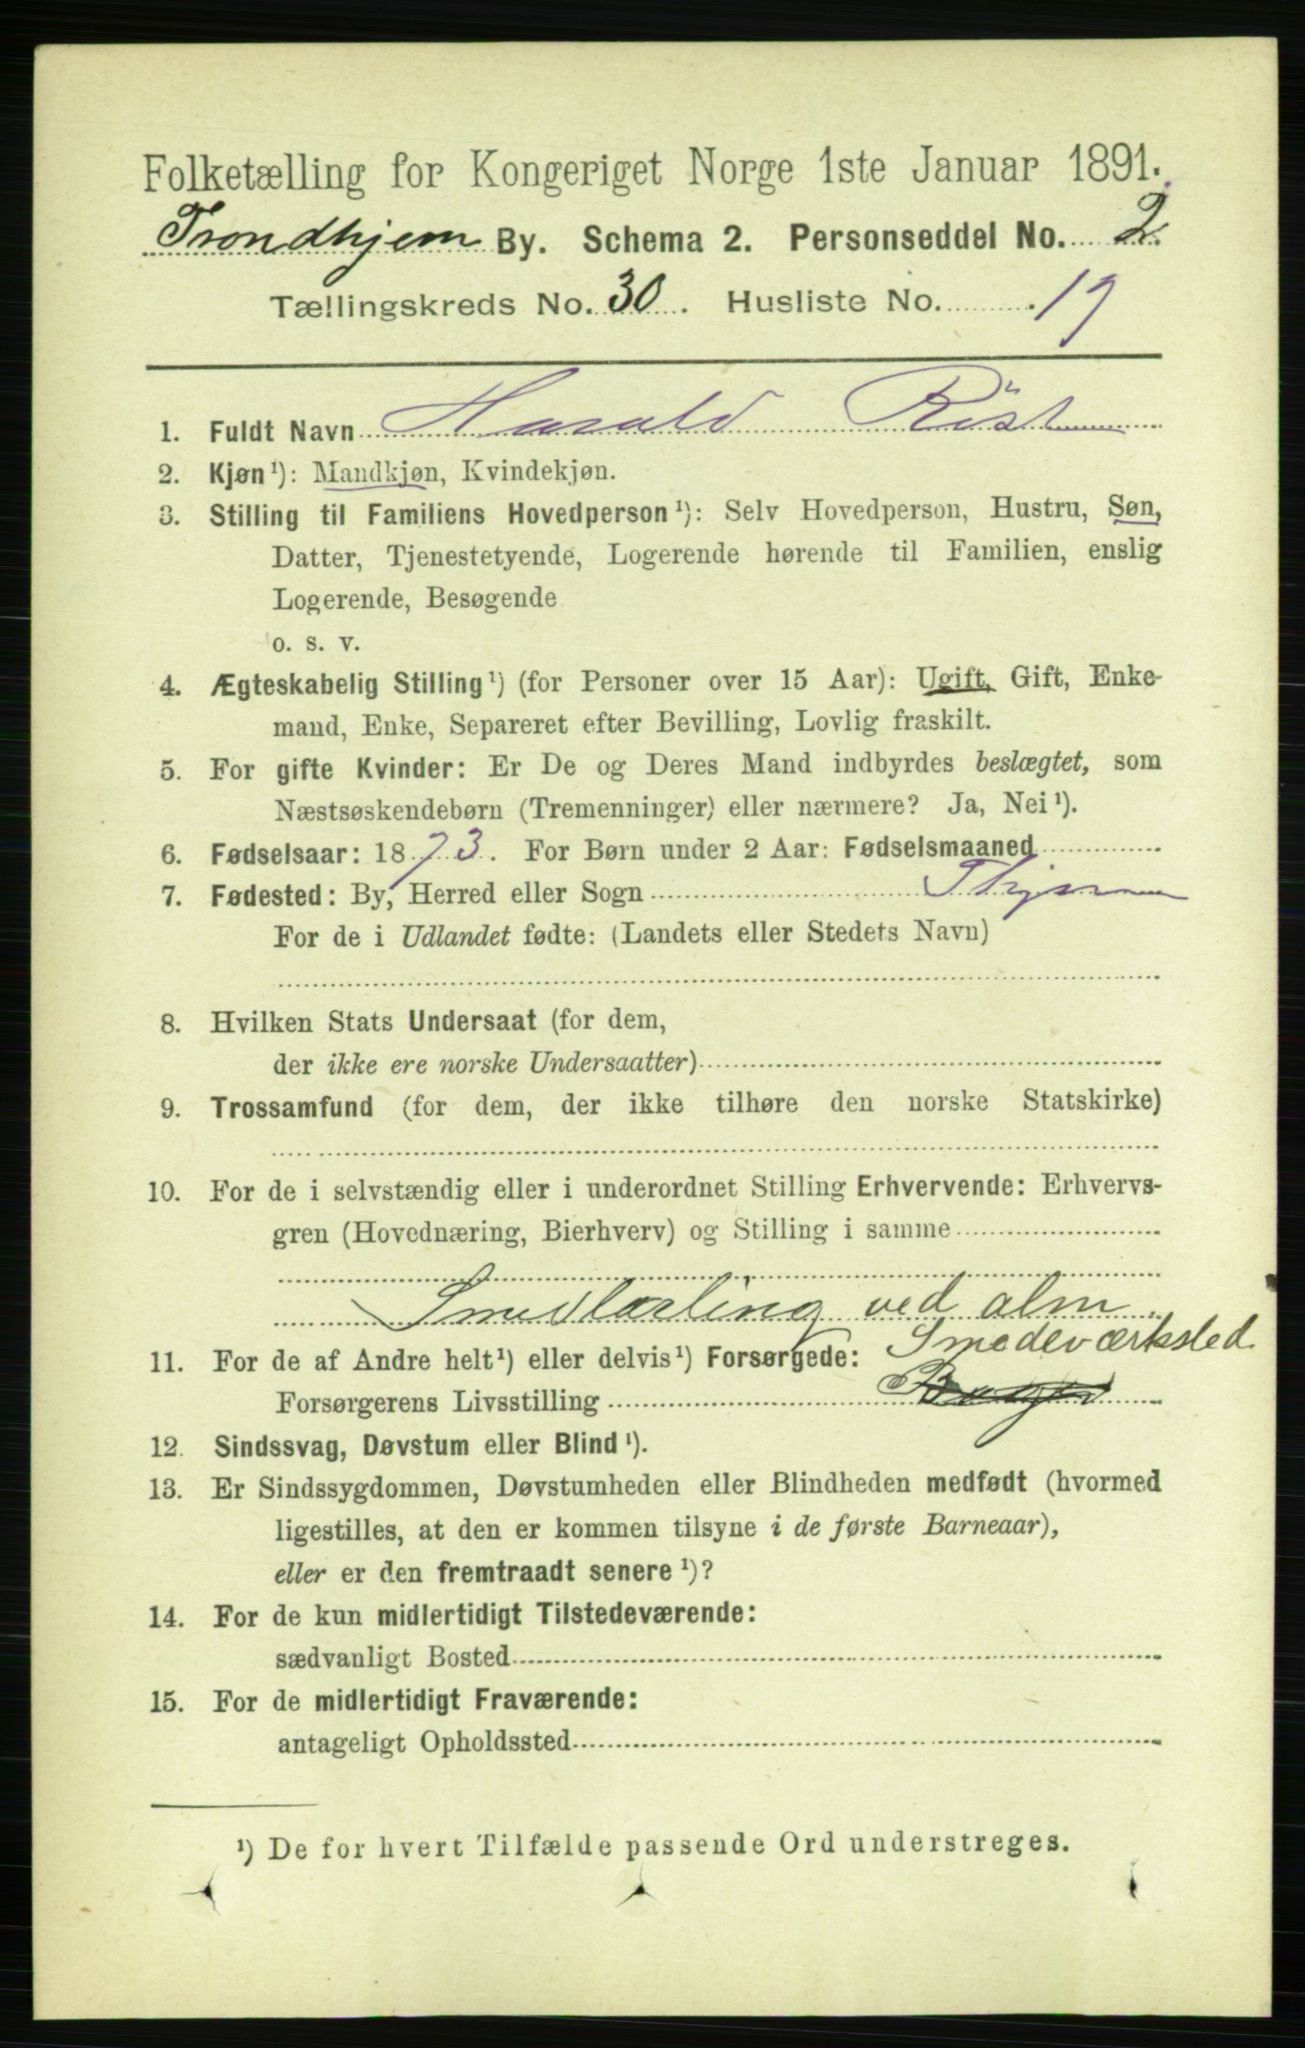 Folketælling for Kongeriget Norge 1ste Januar 1891.
Trondhjem By. Schema 2. Personseddel No. 2.
Tællingskreds No. 30. Husliste No. 19
1. Fuldt Navn Harald Röst
2. Kjøn¹): Mandkjøn, Kvindekjøn.
3. Stilling til Familiens Hovedperson¹): Selv Hovedperson, Hustru, Søn,
Datter, Tjenestetyende, Logerende hørende til Familien, enslig
Logerende, Besøgende
o. s. v.
4. Ægteskabelig Stilling¹) (for Personer over 15 Aar): Ugift, Gift, Enke-
mand, Enke, Separeret efter Bevilling, Lovlig fraskilt.
5. For gifte Kvinder: Er De og Deres Mand indbyrdes beslægtet, som
Næstsøskendebørn (Tremenninger) eller nærmere? Ja, Nei¹).
6. Fødselsaar: 1873. For Børn under 2 Aar: Fødselsmaaned
7. Fødested: By, Herred eller Sogn Thjem
For de i Udlandet fødte: (Landets eller Stedets Navn)
8. Hvilken Stats Undersaat (for dem,
der ikke ere norske Undersaatter)
9. Trossamfund (for dem, der ikke tilhøre den norske Statskirke)
10. For de i selvstændig eller i underordnet Stilling Erhvervende: Erhvervs-
gren (Hovednæring, Bierhverv) og Stilling i samme
Smedlærling ved alm.
Smedeværksted
11. For de af Andre helt¹) eller delvis¹) Forsørgede:
Forsørgerens Livsstilling
12. Sindssvag, Døvstum eller Blind¹).
13. Er Sindssygdommen, Døvstumheden eller Blindheden medfødt (hvormed
ligestilles, at den er kommen tilsyne i de første Barneaar),
eller er den fremtraadt senere¹)?
14. For de kun midlertidigt Tilstedeværende:
sædvanligt Bosted
15. For de midlertidigt Fraværende:
antageligt Opholdssted
¹) De for hvert Tilfælde passende Ord understreges.